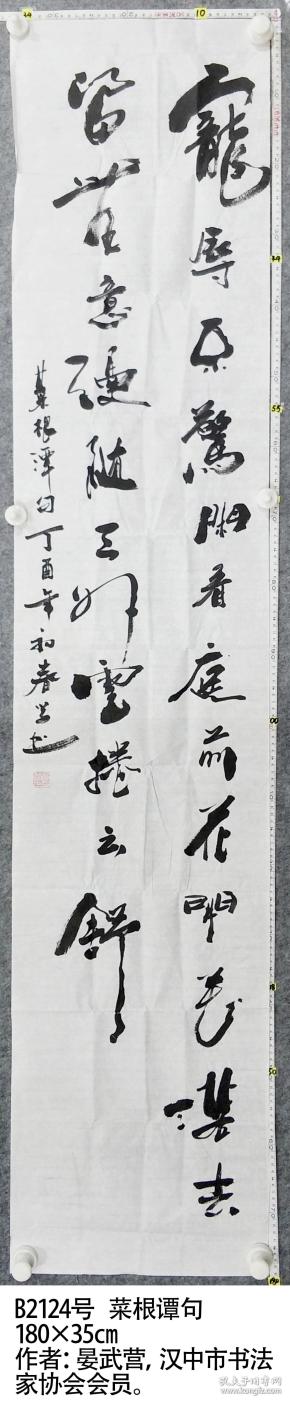 寵辱不驚閒看庭前花開花落去
留無意漫随天外雲捲云舒
菜根潭句丁酉年初春书
B2124号 菜根谭句
180×35㎝
作者：晏武营，汉中市书法
家协会会员。